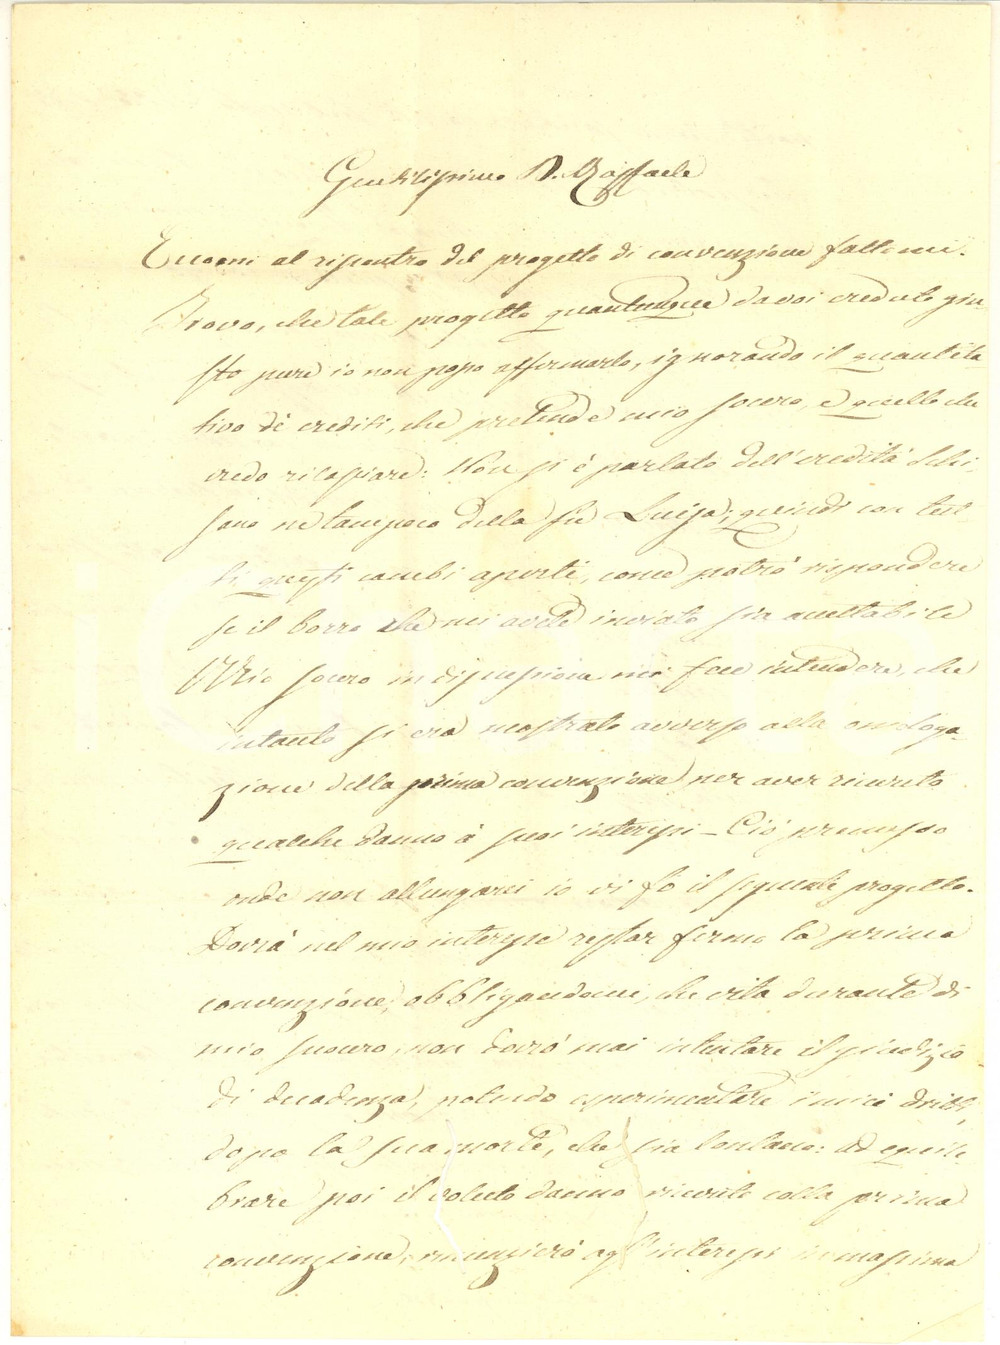 Gentilissimo D. Raffaele
Eccomi al riscontro del progetto di convenzione fattomi.
Trovo, che tale progetto quantunque da voi creduto giu-
sto pure io non posso affermarlo, ignorando il quantita
tivo de crediti, che pretende mio socero, e quello che
credo rilasciare: Non si è parlato dell'eredità
sano ne tampoco della fu Luisa; quindi con tut
ti questi cambi aperti, come potrò rispondere
se il borro che mi avete inviato sia accettabile
Mio socero in discussione mi fece intendere, che
intanto si era mostrato avverso alla omologa-
zione della prima convenzione per aver ricevuto
qualche danno a' suoi interessi - Ciò premesso
onde non allungarci io vi fò il seguente progetto.
Dovrà nel mio interesse restar ferma la prima
convenzione, obbligandomi, che vita durante di
mio suocero non dovrò mai intentare il giudizio
di decadenza, potendo esperimentare i miei dritti,
dopo la sua morte, che sia lontana: ad equili
brare poi il voluto danno ricevuto colla prima
convenzione, rinunzierò agl'interessi in massima